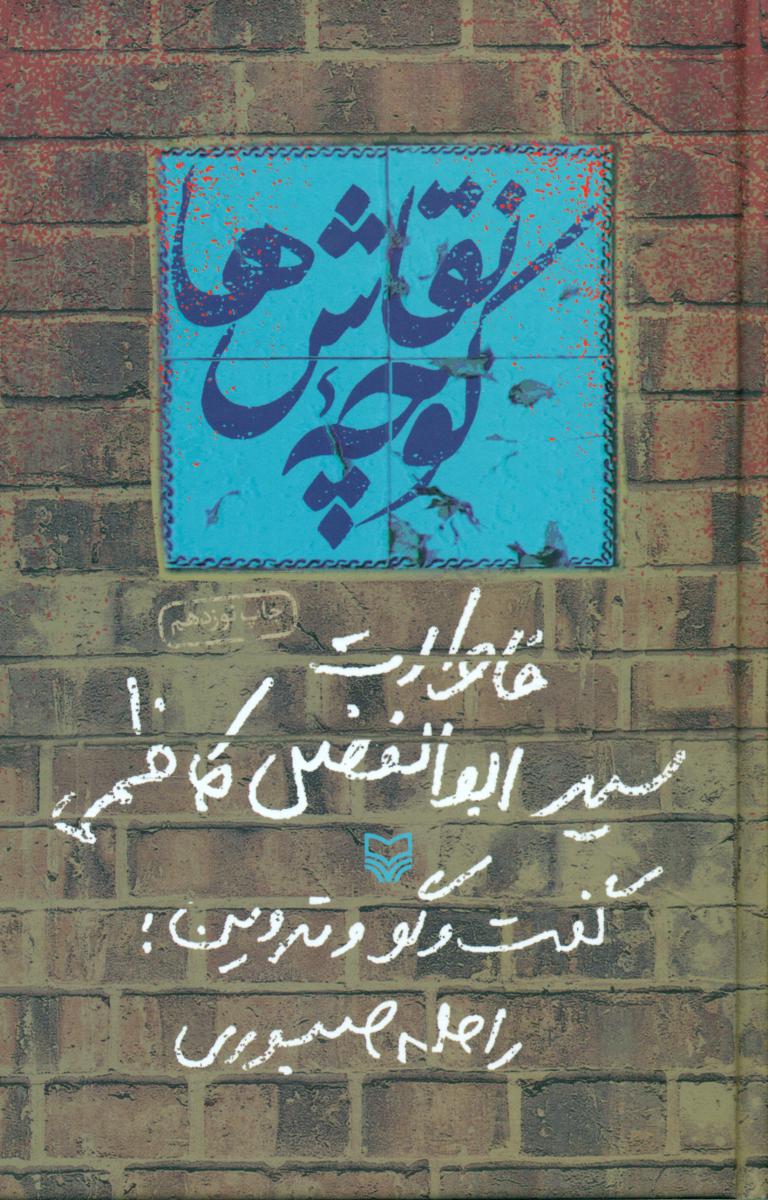 کوچه نقاش‌ها
چاپ نوزدهم
خاطرات
سید ابوالفضل کاظمی
گفت و گو و تدوین:
راحله صبوری